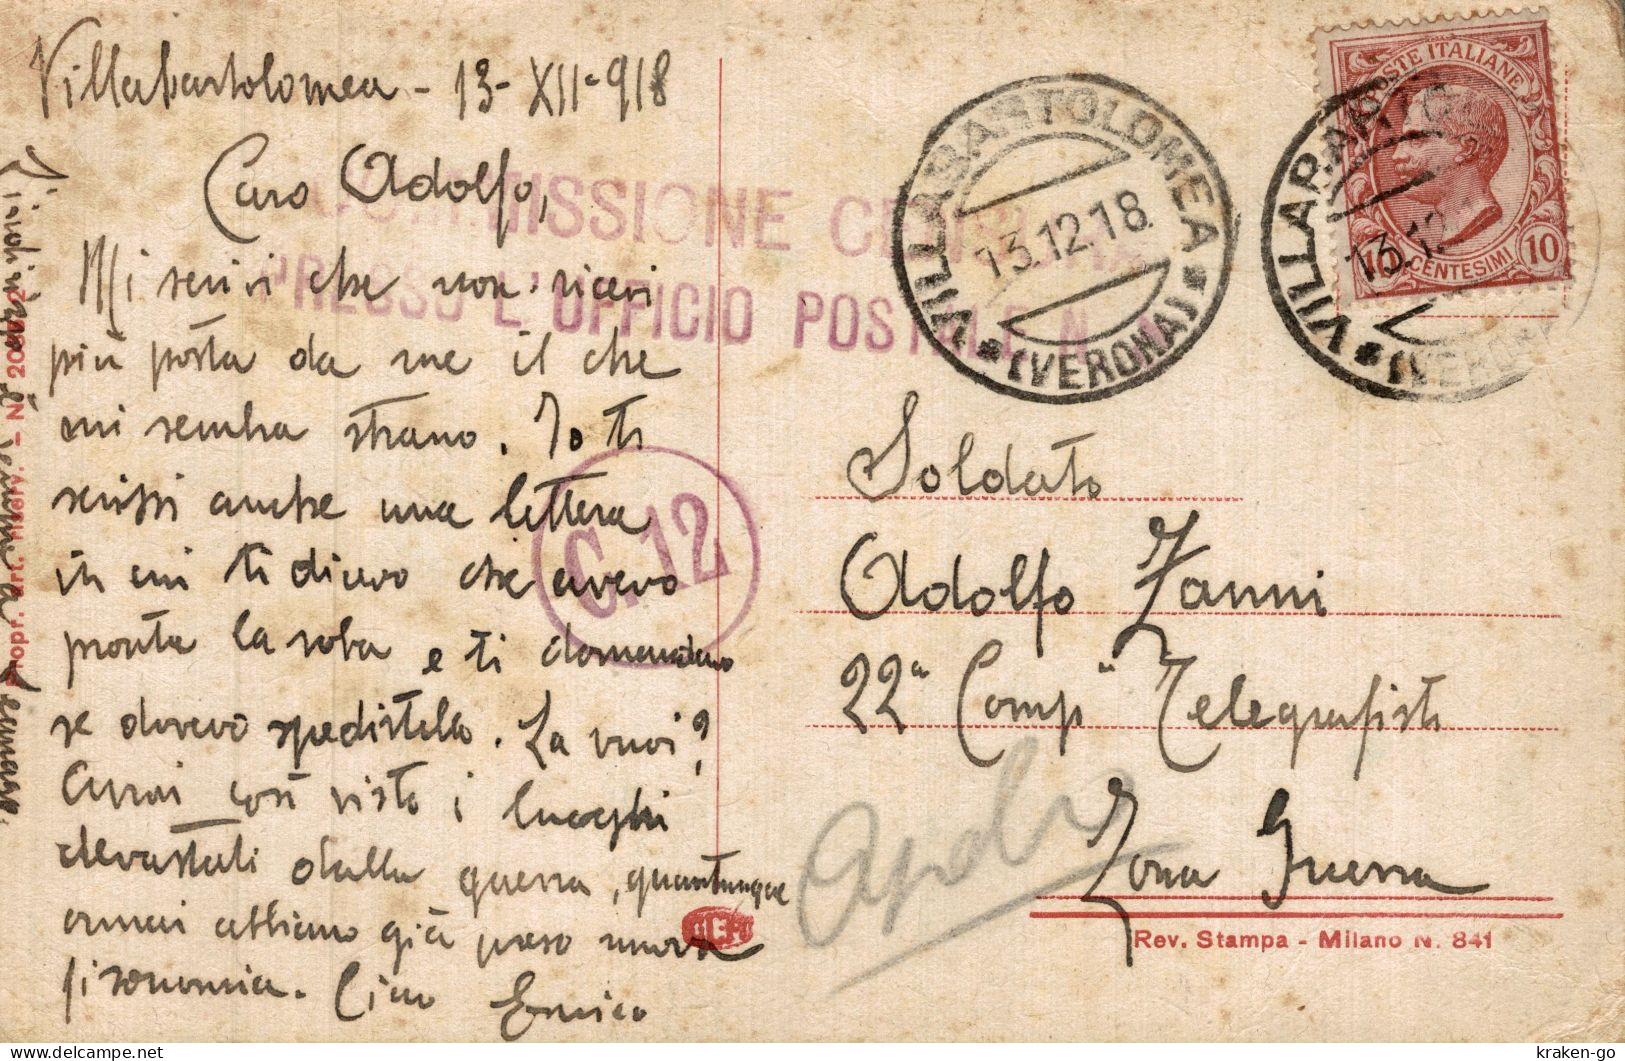 Villabartolomea - 13-XII-918
Caro Adolfo,
Mi scrivi che non ricevi
più posta da me il che
mi sembra strano. Io ti
scrissi anche una lettera
in cui ti dicevo che avevo
pronta la roba e ti domandavo
se dovevo spedirtela. La vuoi?
Avrai così visto i luoghi
devastati dalla guerra, quantunque
ormai abbiano già preso nuova
fisonomia. Ciao Enrico
è a Firenze.
Propr. art. riserv. - N. 200
MISSIONE CE
PRESSO L'UFFICIO POSTALE N.
C. 12
VILLABARTOLOMEA
13.12.18
(VERONA)
VILLABARTO
13.12
(VERONA)
POSTE ITALIANE
CENTESIMI 10
Soldato
Adolfo Zanni
22ª Comp Telegrafisti
Zona Guerra
Rev. Stampa - Milano N. 841
kraken-go
delcampe.net